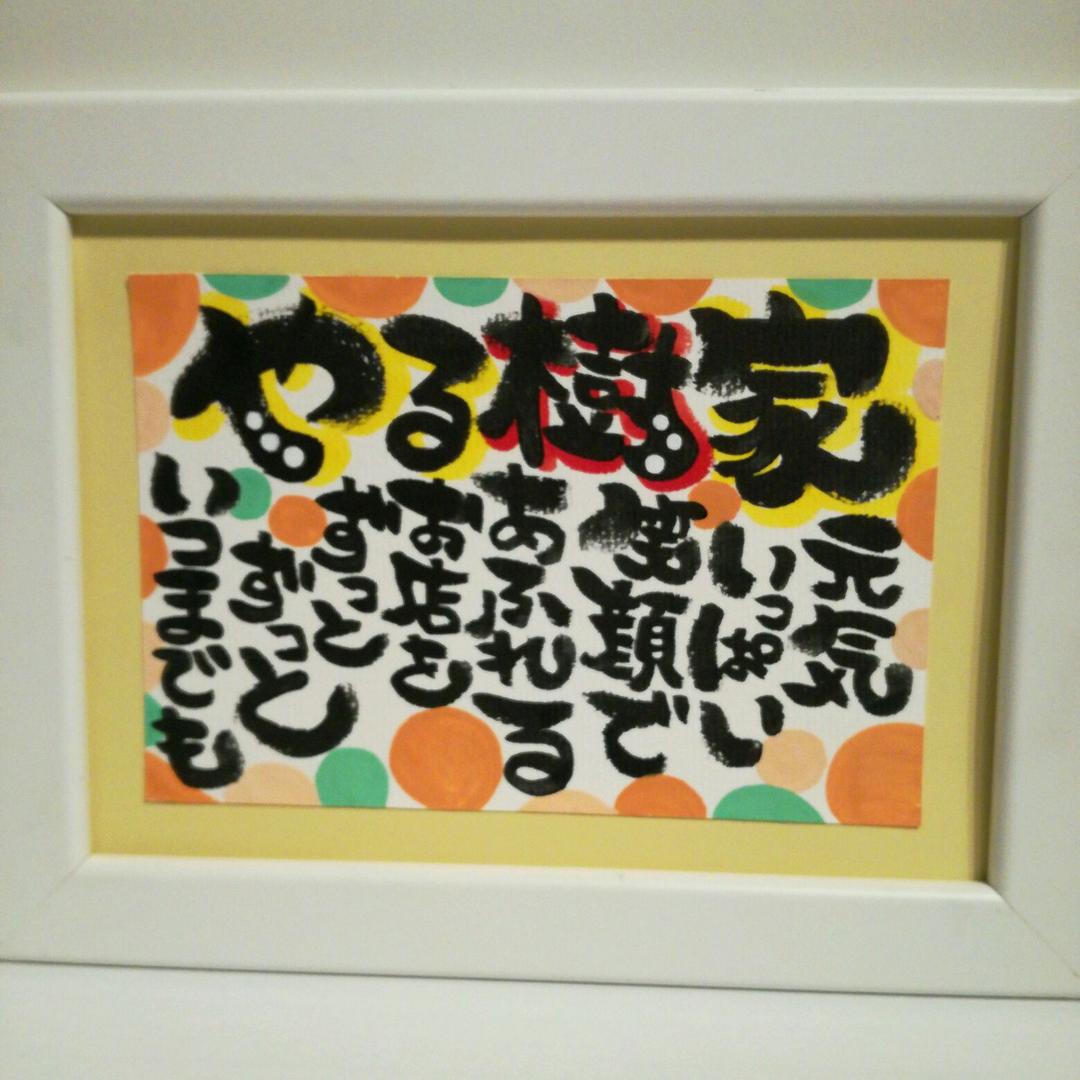 やる樹家
元気
いっぱい
笑顔で
あふれる
お店を
ずっと
ずっと
いつまでも